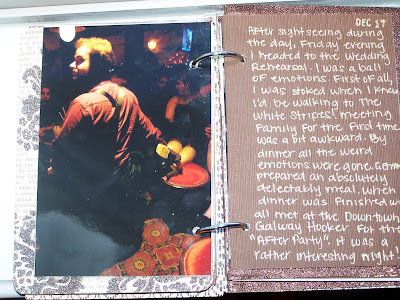 DEC 17
After sightseeing during
the day, Friday evening
I headed to the Wedding
Rehearsal. I was a ball
of emotions. First of all,
I was stoked when I knew
I'd be walking to The
White Stripes! meeting
Family for the First time
was a bit awkward. By
dinner all the weird
emotions were gone.
prepared an absolutely
delectably meal. When
dinner was finished we
all met at the Downtown
Galway Hooker For the
"After Party". It was a
rather interesting night!